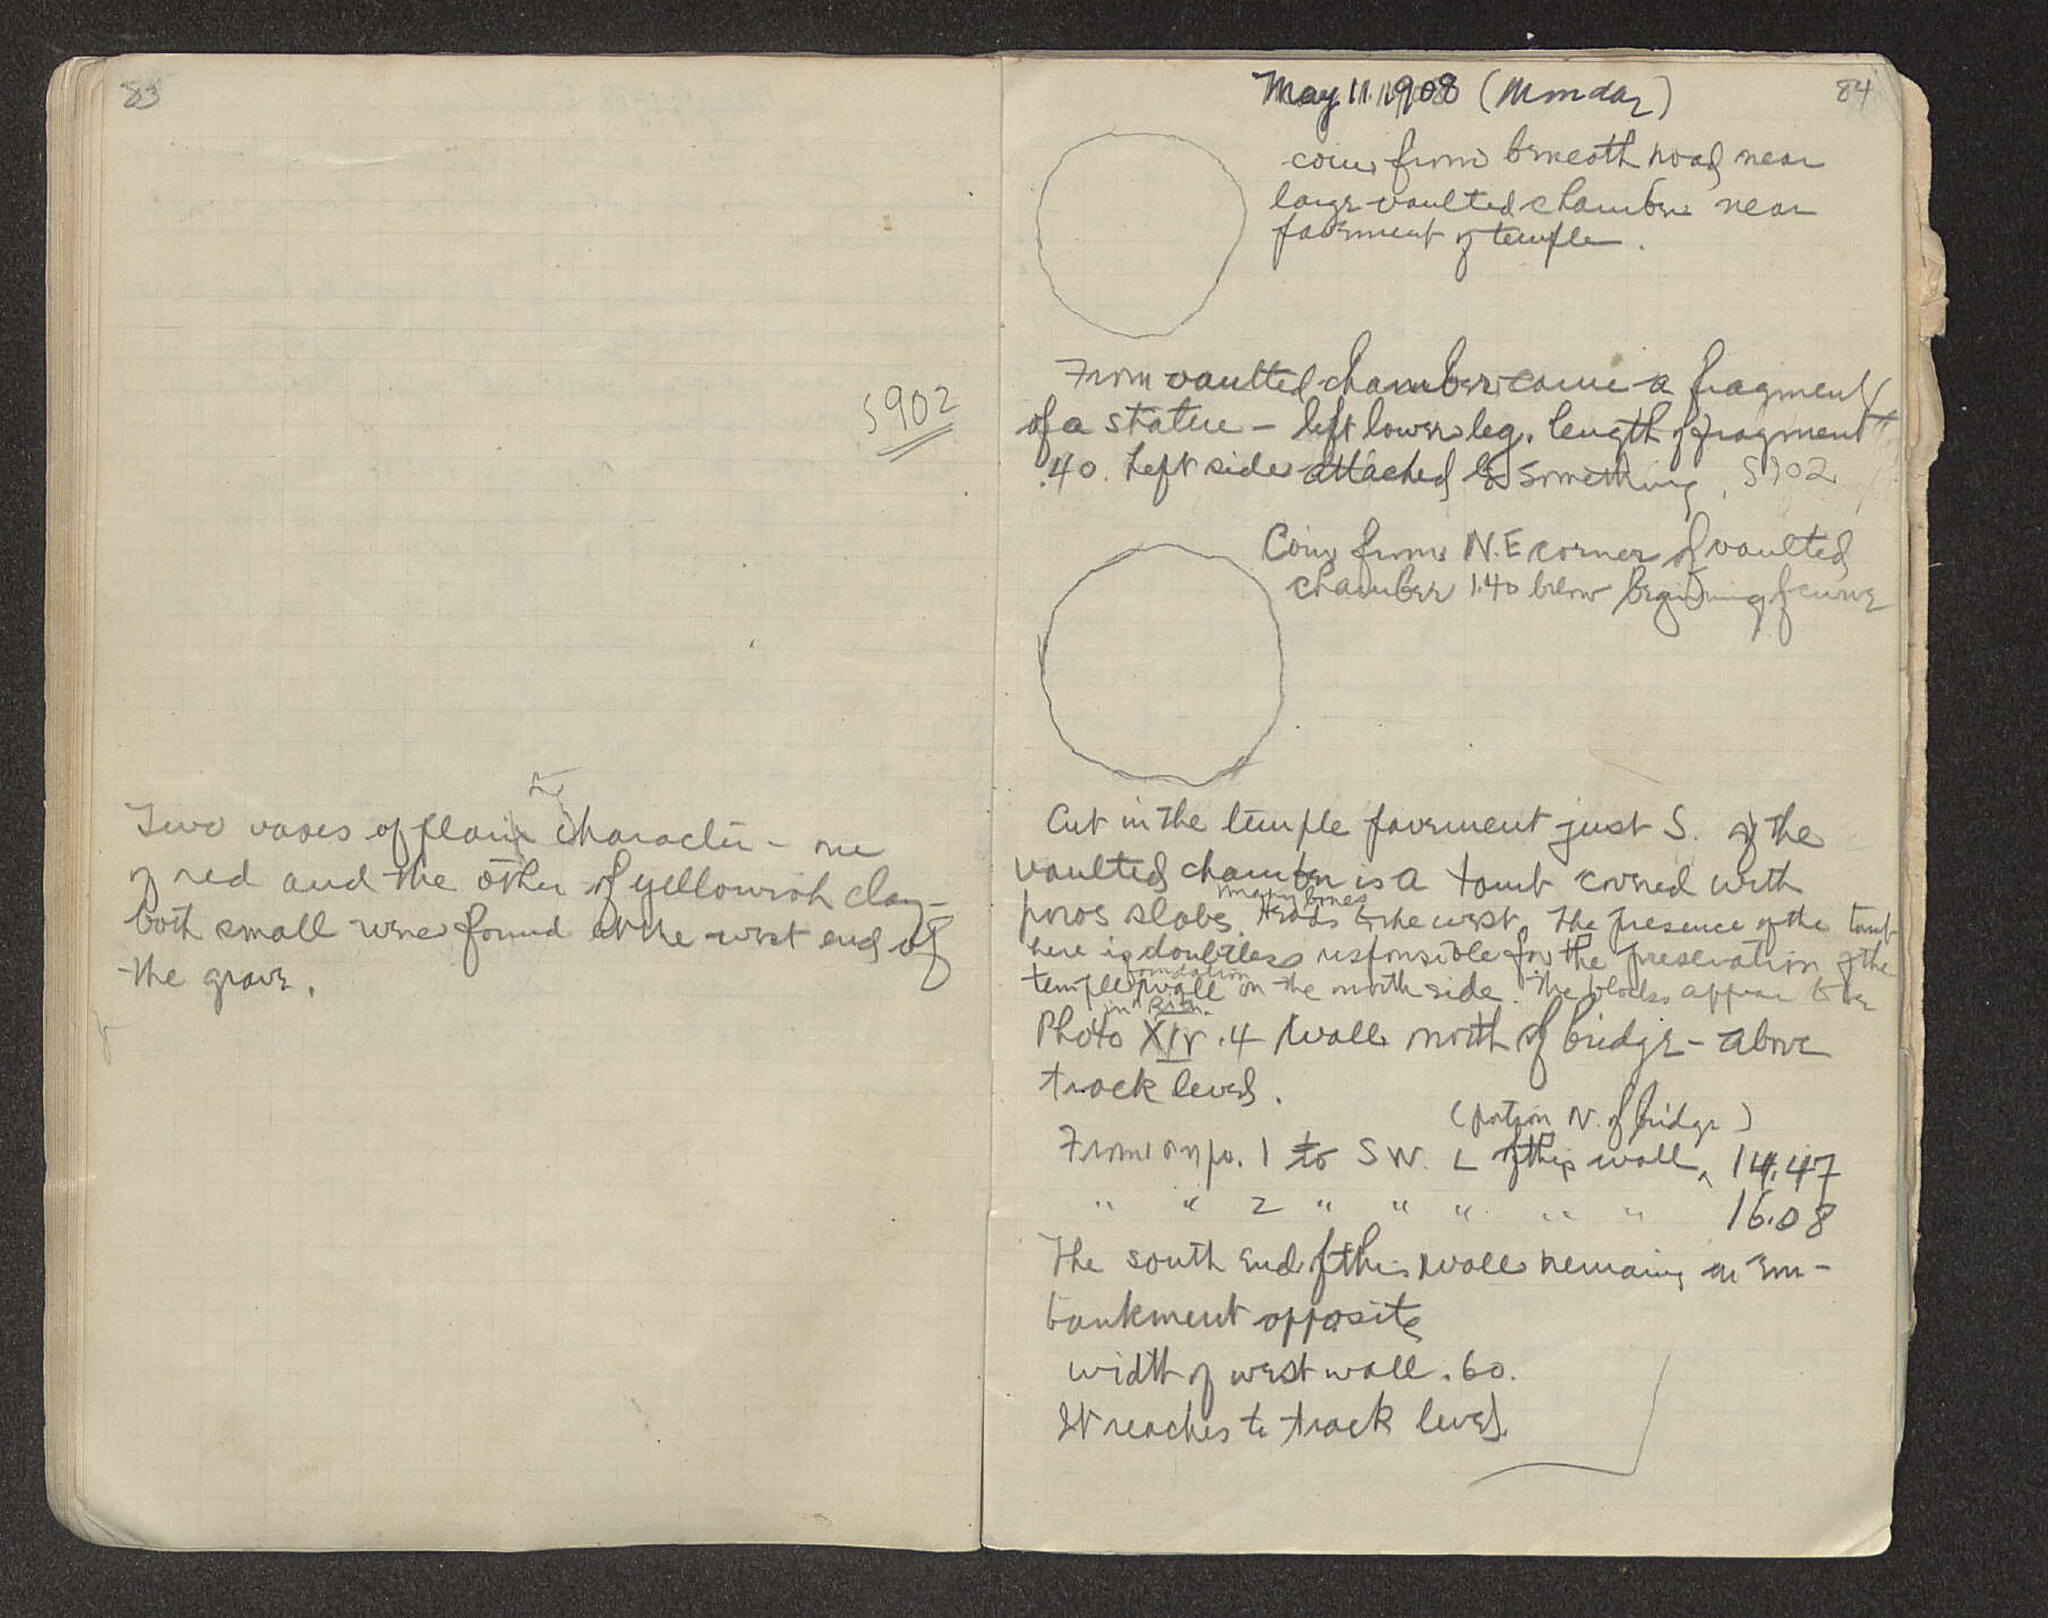 83
S 902
Two vases of plain character - one
of red and the other of yellowish clay -
both small were found at the west end of
the grave.
84
May 11. 1908 (Monday)
coin from beneath road near
large vaulted chamber near
pavement of temple.
From vaulted chamber came a fragment
of a statue - left lower leg. length of fragment
.40. Left side attached to something. S 902
Coin from N.E corner of vaulted
chamber 1.40 below beginning of curve
Cut in the temple pavement just S. of the
vaulted chamber is a tomb covered with
many bones
poros slabs. Heads to the west. The presence of the tomb
here is doubtless responsible for the preservation of the
foundation
temple wall on the north side. The blocks appear to be
in situ.
Photo XIV.4 Wall north of bridge - above
track level.
(portion N. of bridge)
From 1 to S W. L of this wall ^ 14.47
" " 2 " " " " " 16.08
The south end of this wall remains in em-
bankment opposite
width of west wall .60.
It reaches to track level.